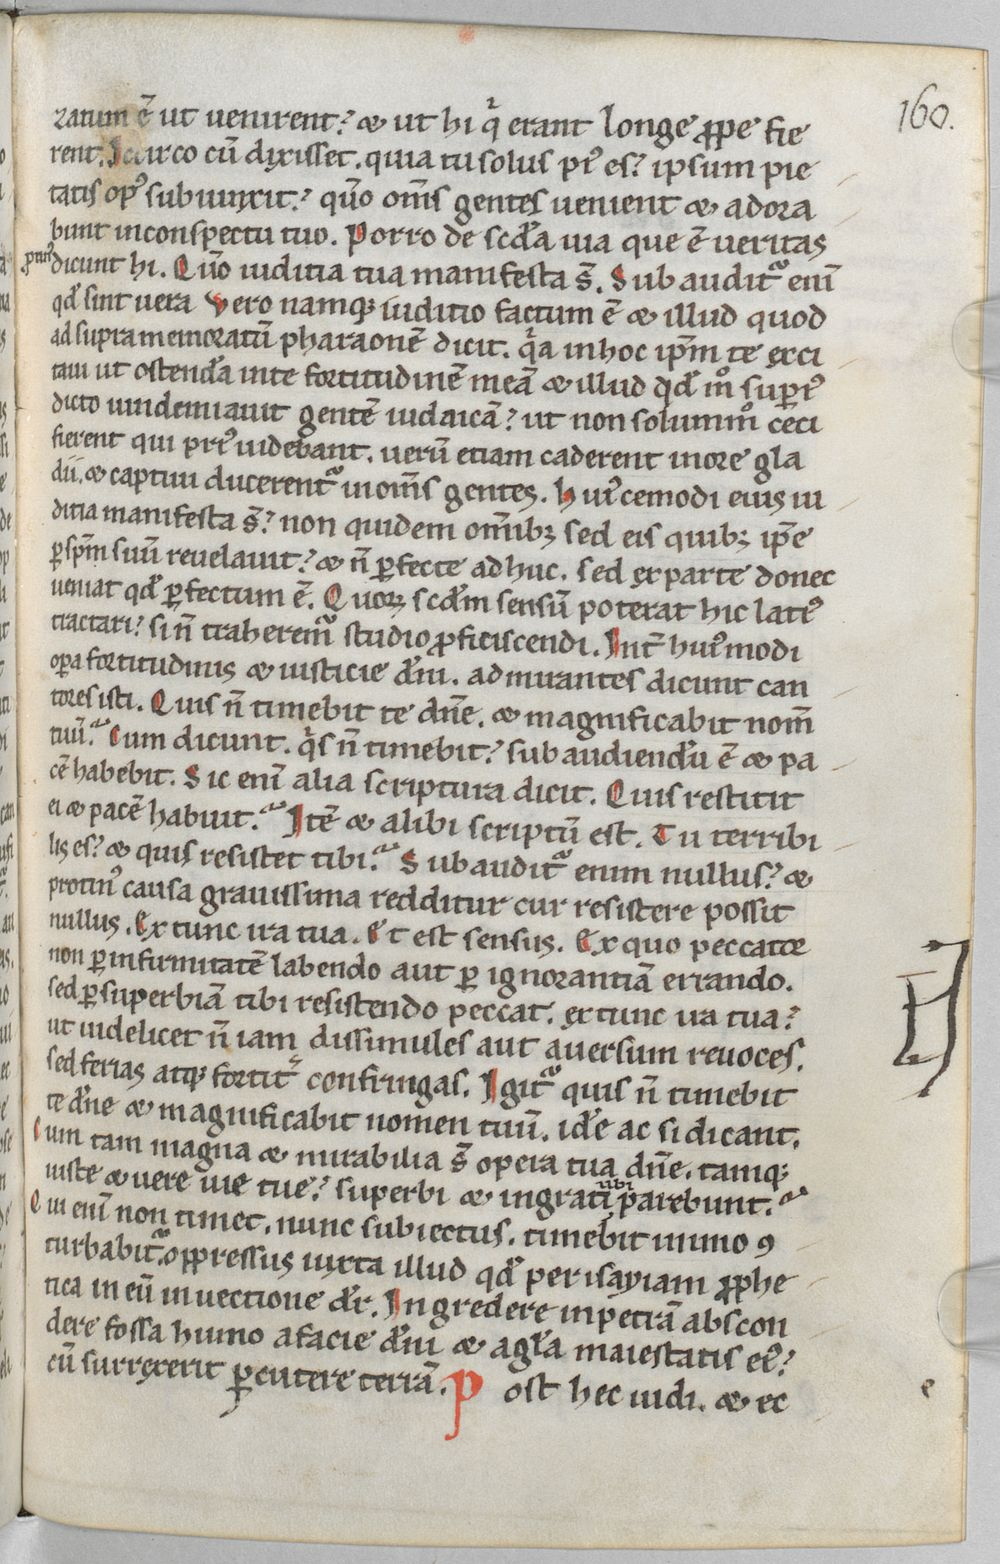 160.
ratum ē ut uenirent? & ut hi qͥ erant longe ꝓpe fie
rent. Idcirco cū dixisset. quia tu solus piꝰ es? ipsum pie
tatis opꝰ subiunxit? qūo om̄s gentes uenient & adora
bunt in conspectu tuo. Porro de scd̄a uia que ē ueritas
dicunt hi. Qūo iuditia tua manifesta s̄. Subauditᷣ enī
qd̄ sint uera Vero namq; iuditio factum ē & illud quod
ad supra memoratū pharaonē dicit. qͥa in hoc ip̄m te exci
taui ut ostendā in te fortitudinē meā & illud qd̄ mͦ supͥ
dicto uindemiauit gentē iudaicā? ut non solummͦ ceci
fierent qui priꝰ uidebant. uerū etiam caderent in ore gla
dii. & captiui ducerentᷣ in om̄s gentes. Huiꝰcemodi eius iu
ditia manifesta s̄? non quidem om̄ibꝫ sed eis quibꝫ ip̄e
ꝑ sp̄m suū reuelauit? & n̄ ꝑfecte adhuc. sed ex parte donec
ueniat qd̄ ꝑfectum ē. Quoꝝ scd̄m sensū poterat hic latiꝰ
tractari? si n̄ traheremᷣ studio ꝓficiscendi. Int̄ huiꝰmodi
opa fortitudinis & iusticie dn̄i. admirantes dicunt can
tores isti. Quis n̄ timebit te dn̄e. & magnificabit nom̄
tuū? Cum dicunt. qͥs n̄ timebit? subaudiendū ē & pa
cē habebit. Sic enī alia scriptura dicit. Quis restitit
ei & pacē habuit? Itē & alibi scriptū est. Tu terribi
lis es? & quis resistet tibi? Subauditᷣ enim nullus? &
protinꝰ causa grauissima redditur cur resistere possit
nullus. Ex tunc ira tua. Et est sensus. Ex quo peccatͦ
non ꝑ infirmitatē labendo aut ꝑ ignorantiā errando.
sed ꝑ superbiā tibi resistendo peccat. ex tunc ira tua?
ut uidelicet n̄ iam dissimules aut auersum reuoces.
sed ferias atq; fortitͥ confringas. Igitᷣ quis n̄ timebit
te dn̄e & magnificabit nomen tuū. id ē ac si dicant.
Cum tam magna & mirabilia s̄ opera tua dn̄e. tamq;
iuste & uere uie tue? superbi & ingrati tibi parebunt?
Qui enī non timet. nunc subiectus. timebit immo ꝯ
turbabitᷣ oppressus iuxta illud qd̄ per isayiam ꝓphe
tica in eū inuectione dr̄. Ingredere in petrā abscon
dere fossa humo a facie dn̄i & a gl̄a maiestatis eiꝰ?
cū surrexerit ꝑcutere terrā. Post hec uidi. & ec